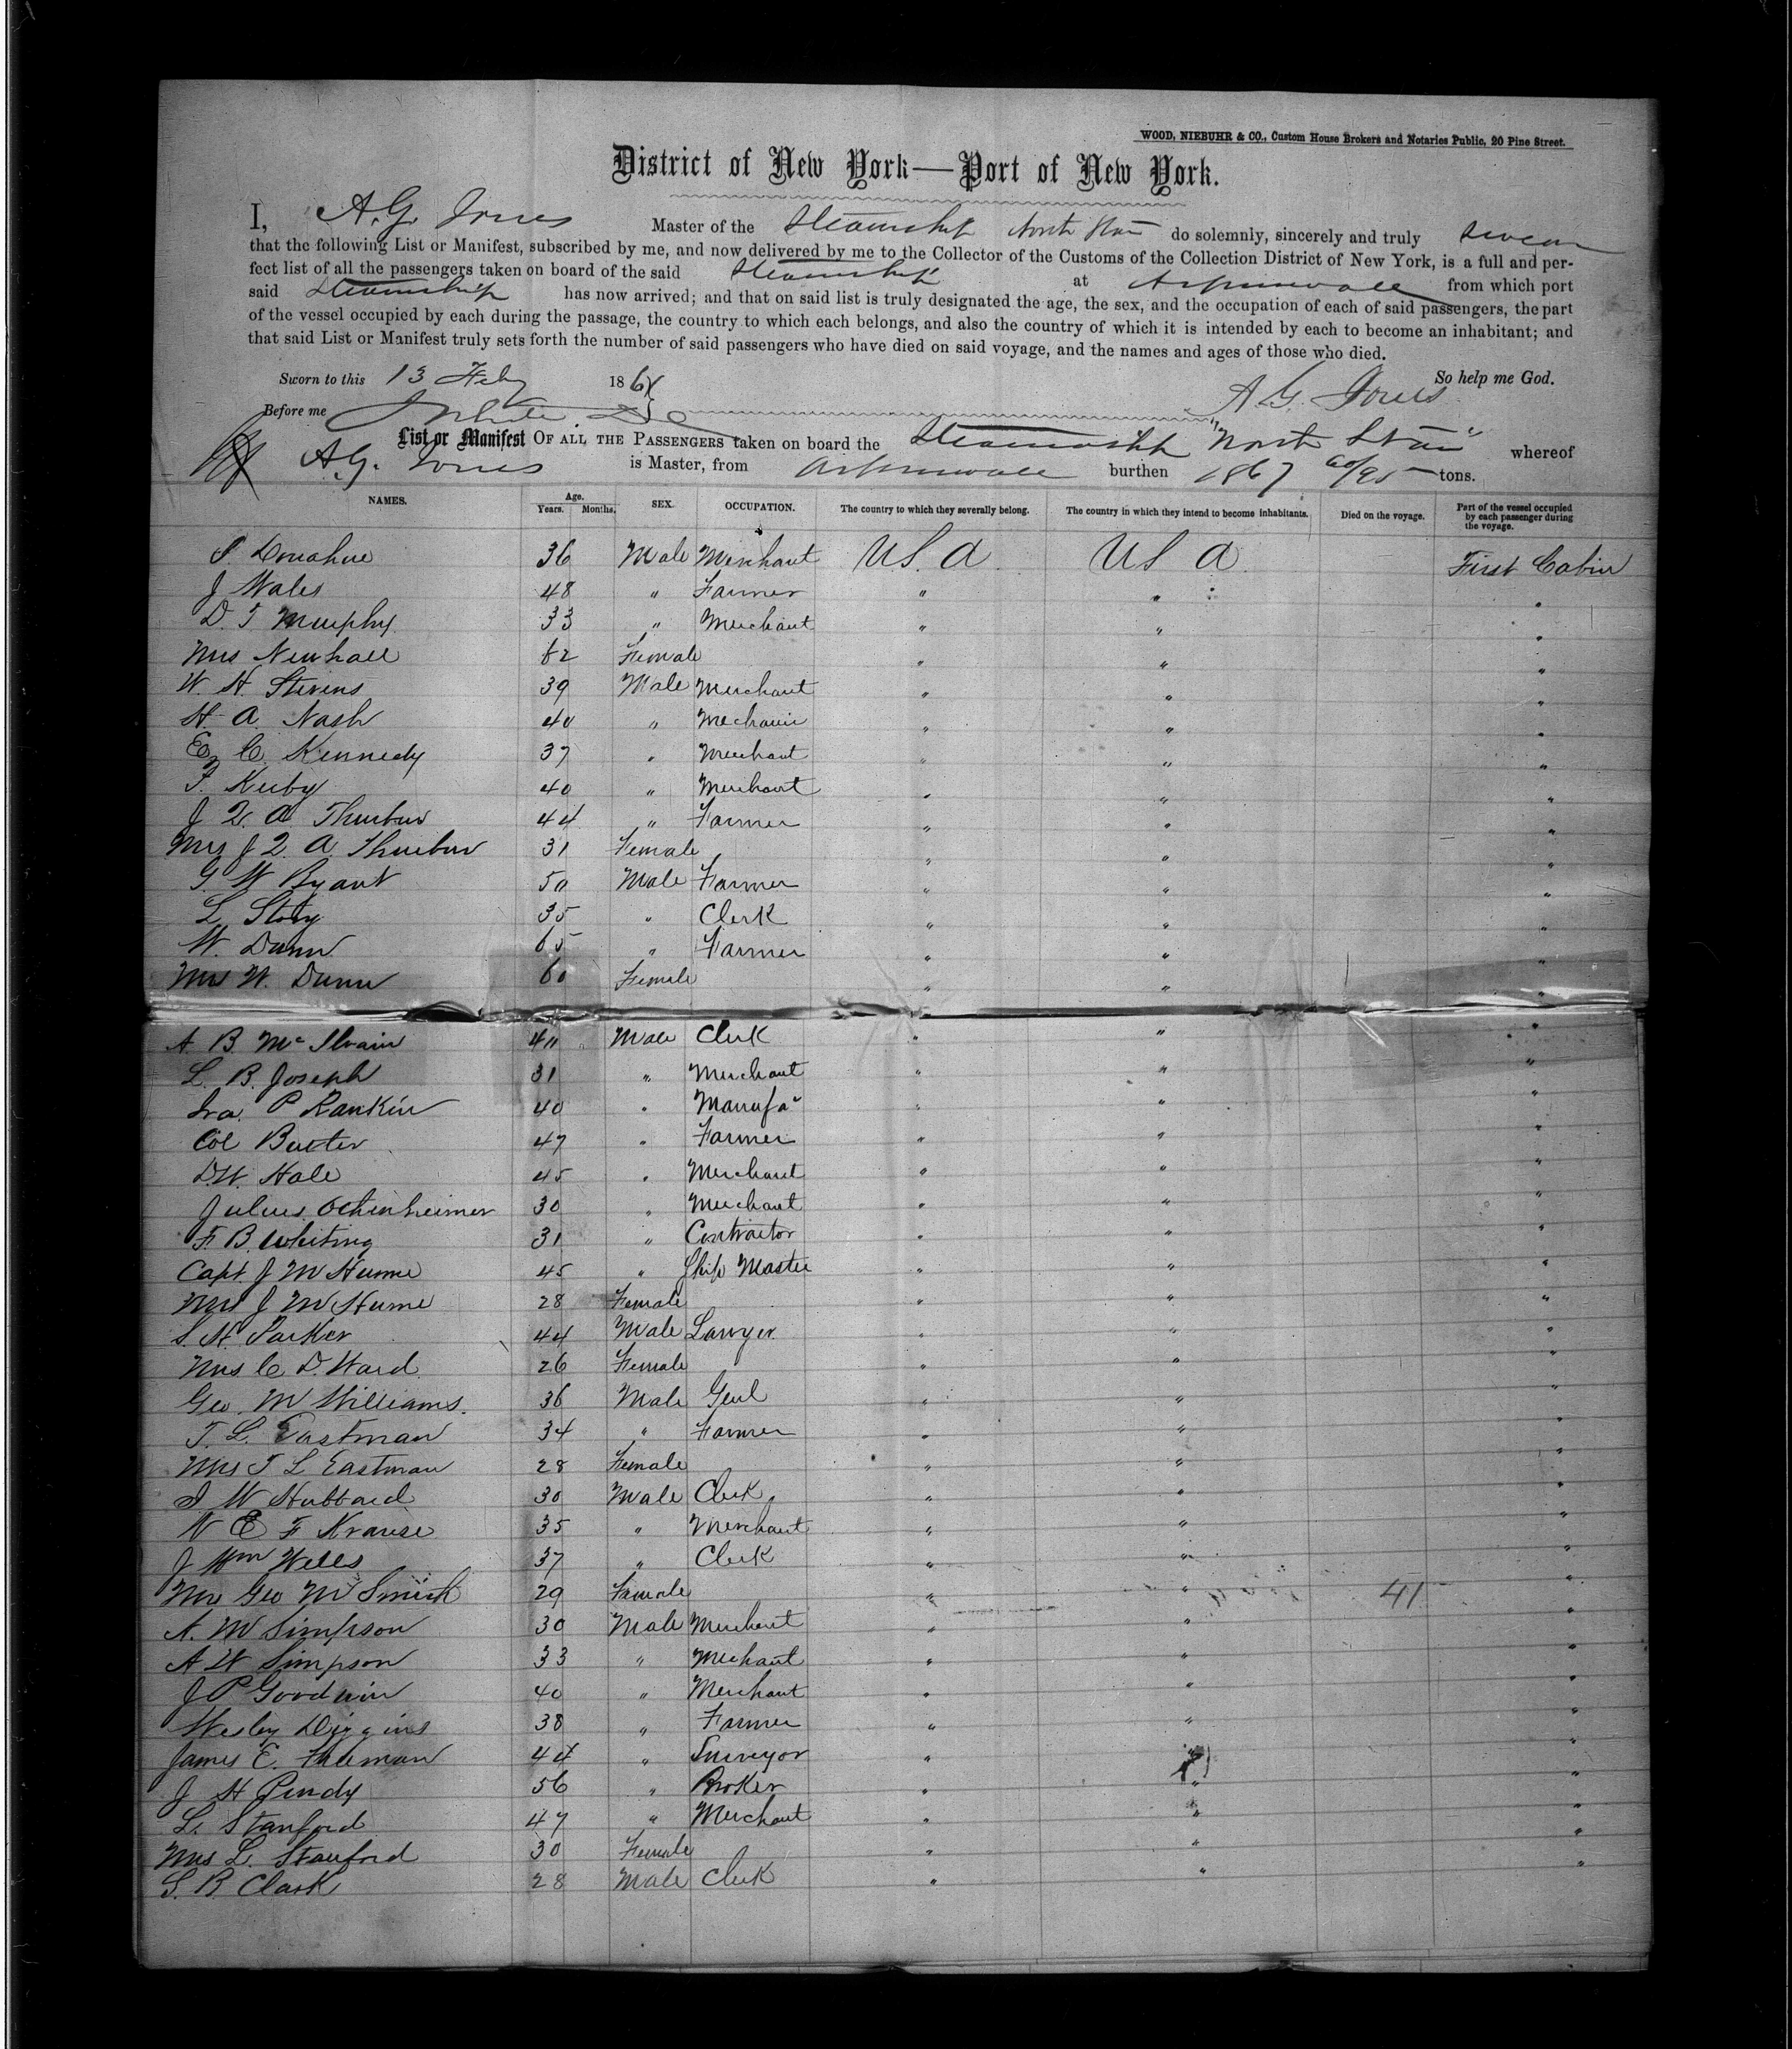 WOOD, NIEBUHR & CO., Custom House Brokers and Notaries Public, 20 Pine Street.
District of New York—Port of New York.
I, A. G. Jones Master of the Steamship North Star do solemnly, sincerely and truly swear
that the following List or Manifest, subscribed by me, and now delivered by me to the Collector of the Customs of the Collection District of New York, is a full and per-
fect list of all the passengers taken on board of the said Steamship at Aspinwall from which port
said Steamship has now arrived; and that on said list is truly designated the age, the sex, and the occupation of each of said passengers, the part
of the vessel occupied by each during the passage, the country to which each belongs, and also the country of which it is intended by each to become an inhabitant; and
that said List or Manifest truly sets forth the number of said passengers who have died on said voyage, and the names and ages of those who died.
Sworn to this 13 Feby 186 So help me God.
Before me A. G. Jones
List or Manifest OF ALL THE PASSENGERS taken on board the Steamship "North Star" whereof
A. G. Jones is Master, from Aspinwall burthen 1867 60/95 tons.
NAMES. Age. Years. Months. SEX. OCCUPATION. The country to which they severally belong. The country in which they intend to become inhabitants. Died on the voyage. Part of the vessel occupied by each passenger during the voyage.
Donahue 36 Male Merchant U S. A U S A First Cabin
J Wales 48 " Farmer " " "
D. T Murphy 33 " Merchant " " "
Mrs Newhall 62 Female " " "
W. H. Stevens 39 Male Merchant " " "
H. A Nash 40 " Mechanic " " "
C. Kennedy 37 " Merchant " " "
F. Kirby 40 " Merchant " " "
J Q. A Thurber 44 " Farmer " " "
Mrs J Q. A. Thurber 31 Female " " "
G. W Bryant 50 Male Farmer " " "
L Story 35 " Clerk " " "
W. Dunn 65 " Farmer " " "
Mrs W. Dunn 60 Female " " "
A B McIlvain 40 Male Clerk " " "
L. B. Joseph 31 " Merchant " " "
Ira P Rankin 40 " Manufa" " " "
Col Baxter 47 " Farmer " " "
D.W. Hale 45 " Merchant " " "
Julius Ochenheimer 30 " Merchant " " "
F. B. Whiting 31 " Contractor " " "
Capt J M Hume 45 " Ship Master " " "
Mrs J M Hume 28 Female " " "
S. H. Parker 44 Male Lawyer " " "
Mrs C D. Ward 26 Female " " "
Geo. M Williams. 36 Male Genl " " "
T. L. Eastman 34 " Farmer " " "
Mrs T L Eastman 28 Female " " "
W Hubbard 30 Male Clerk " " "
W E F Krause 35 " Merchant " " "
J Wm Wells 37 " Clerk " " "
Mrs Geo W 29 Female " " 41 "
A. M Simpson 30 Male Merchant " " "
A W Simpson 33 " Mechant " " "
J P Goodwin 40 " Merchant " " "
Wesley Diggins 38 " Farmer " " "
James E. Freeman 44 " Surveyor " " "
J H Purdy 56 " Broker " " "
L. Stanford 47 " Merchant " " "
Mrs L. Stanford 30 Female " " "
S. B. Clark 28 Male Clerk " " "